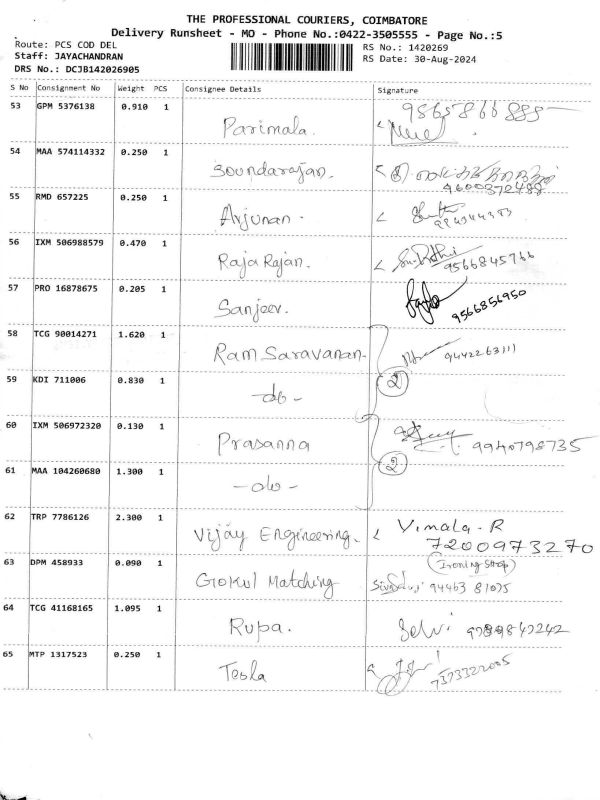 THE PROFESSIONAL COURIERS, COIMBATORE
Delivery Runsheet - MO - Phone No.:0422-3505555 - Page No.:5
Route: PCS COD DEL
RS No.: 1420269
Staff: JAYACHANDRAN
RS Date: 30-Aug-2024
DRS No.: DCJB142026905
S No Consignment No Weight PCS Consignee Details Signature
53 GPM 5376138 0.910 1 Parimala. 9565866888
54 MAA 574114332 0.250 1 Soundarajan. 9600372488
55 RMD 657225 0.250 1 Arjunan.
56 IXM 506988579 0.470 1 Raja Rajan. 9566845766
57 PRO 16878675 0.205 1 Sanjeev. 9566856950
58 TCG 90014271 1.620 1 Ram Saravanan. 9442263111
②
59 KDI 711006 0.830 1 -do-
60 IXM 506972320 0.130 1 Prasanna 9940798735
②
61 MAA 104260680 1.300 1 -do-
62 TRP 7786126 2.300 1 Vijay Engineering. Vimala.R
7200973270
63 DPM 458933 0.090 1 Gokul Matching (Ironing Shop)
94463 81075
64 TCG 41168165 1.095 1 Rupa. Selvi
65 MTP 1317523 0.250 1 Tesla